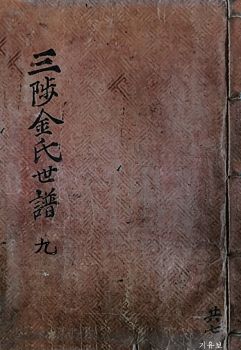 三陟金氏世譜 九
共七
기유보